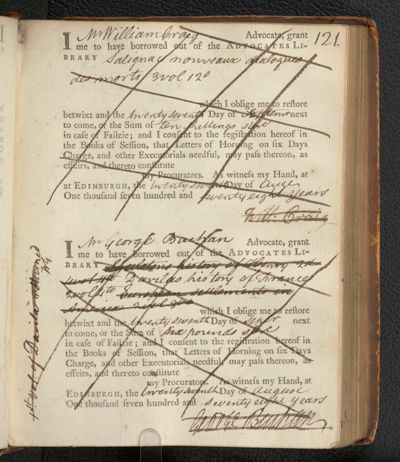 121.
I Mr William Craig Advocate, grant
me to have borrowed out of the ADVOCATES LI-
BRARY Salignac nouveaux dialogues
des morts 3 vol 12o
which I oblige me to restore
betwixt and the twenty seventh Day of next
to come, or the Sum of ten shillings
in case of Failzie; and I consent to the registration hereof in
the Books of Session, that Letters of Horning on six Days
Charge, and other Executorials needful, may pass thereon, as
effeirs, and thereto constitute
my Procurators. As witness my Hand, at
at EDINBURGH, the twenty seventh Day of
One thousand seven hundred and seventy eight years
Will: Craig
I Mr George Buchan Advocate, grant
me to have borrowed out of the ADVOCATES LI-
BRARY history of Henry 2d
Davilas history of France
European settlements in
America 2 vol
which I oblige me to restore
betwixt and the twenty seventh Day of next
to come, or the Sum of six pounds
in case of Failzie; and I consent to the registration hereof in
the Books of Session, that Letters of Horning on six Days
Charge, and other Executorials needful, may pass thereon, as
effeirs, and thereto constitute
my Procurators. As witness my Hand, at
EDINBURGH, the twenty seventh Day of August
One thousand seven hundred and seventy eight years
George Buchan
vol of Davila returned